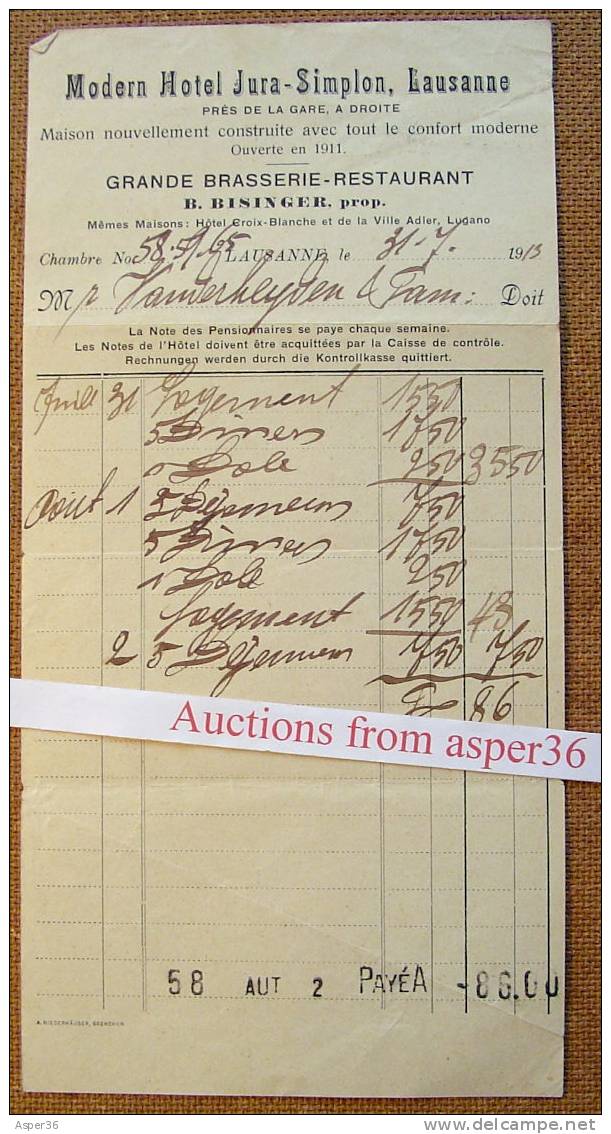 Modern Hotel Jura-Simplon, Lausanne
PRÈS DE LA GARE, A DROITE
Maison nouvellement construite avec tout le confort moderne
Ouverte en 1911.
GRANDE BRASSERIE-RESTAURANT
B. BISINGER, prop.
Mêmes Maisons: Hôtel Croix-Blanche et de la Ville Adler, Lugano
Chambre No 58.59.65 LAUSANNE le 31-7. 1913
Mr Vanderheyden & Fam: Doit
La Note des Pensionnaires se paye chaque semaine.
Les Notes de l'Hôtel doivent être acquittées par la Caisse de contrôle.
Rechnungen werden durch die Kontrollkasse quittiert.
Juill 31 Logement 1550
5 Diners 1750
Dole 250 3550
Aout 1 5 Déjeuners 750
5 Diners 1750
1 Dole 250
Logement 1550 43
2 5 Déjeuners 750 750
86
Auctions from asper36
58 AUT 2 PAYÉA -86.00
A. NIEDERHÄUSER, GRENCHEN
Asper36